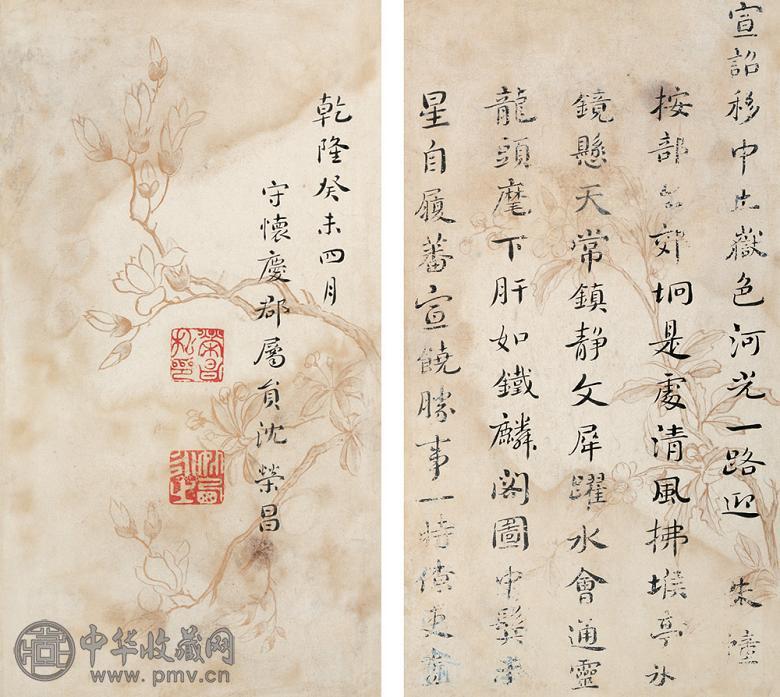 宣詔移中止嶽色河光一路迎 朱
按部 郊坰是處清風拂堠亭
鏡懸天常鎮靜文犀躍水會通靈
龍頭麾下肝如鐵麟閣圖中鬢
星自履蕃宣饒勝事一時 吏
乾隆癸未四月
守懷慶郡屬員沈榮昌
中华收藏网
www.pmv.cn